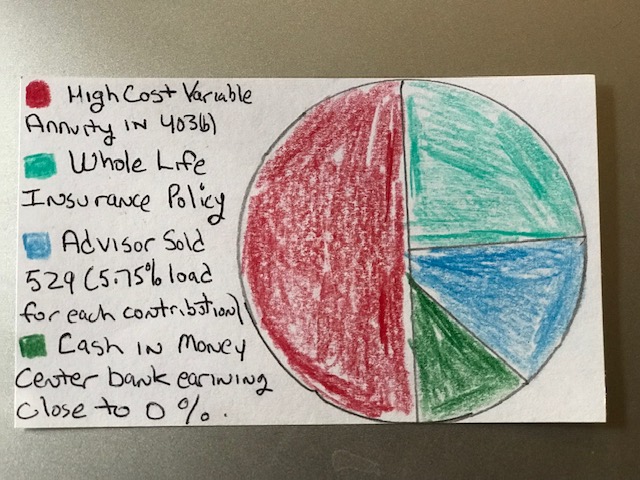 High Cost Variable
Annuity in 403(b)
Whole Life
Insurance Policy
Advisor Sold
529 (5.75% load
for each contribution)
Cash in Money
Center bank earining
close to 0%.